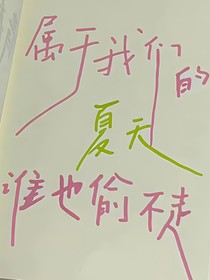 属于我们的
夏天
谁也偷不走